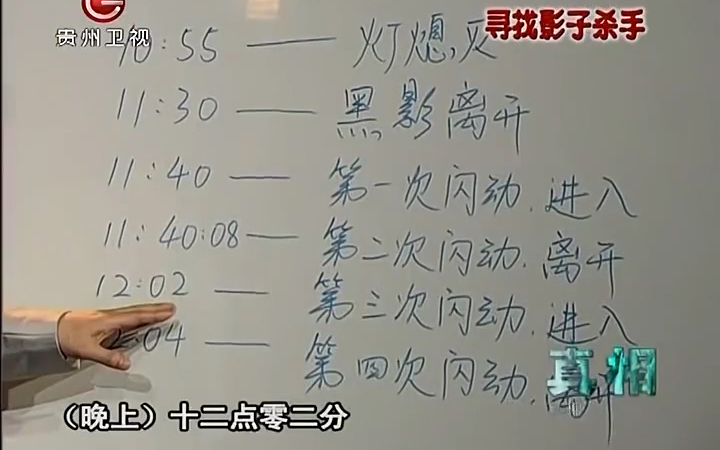 贵州卫视
寻找影子杀手
10:55 —— 灯熄灭
11:30 —— 黑影离开
11:40 —— 第一次闪动.进入
11:40:08 —— 第二次闪动.离开
12:02 —— 第三次闪动.进入
2:04 —— 第四次闪动.离开
真相
（晚上）十二点零二分